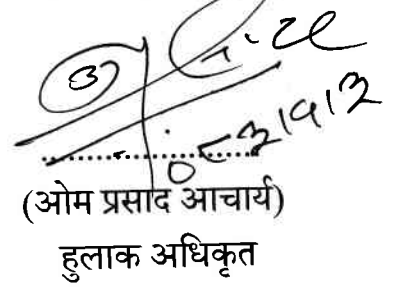 (ओम प्रसाद आचार्य)
हुलाक अधिकृत